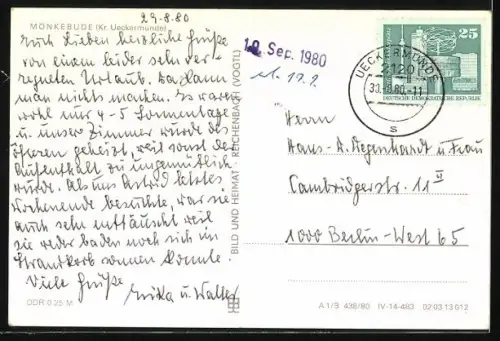 29.8.80
MÖNKEBUDE (Kr. Ueckermünde)
Euch Lieben herzliche Grüße
von einem leider sehr ver-
regneten Urlaub. Da kann
man nichts machen. Es waren
wohl nur 4-5 Sonnentage
u. unser Zimmer wurde des
öfteren geheizt, weil sonst der
Aufenthalt zu ungemütlich
würde. Als uns Astrid letztes
Wochenende besuchte, war sie
auch sehr enttäuscht weil
sie weder baden noch sich im
Strandkorb sonnen konnte.
Viele Grüße
Erika u. Walter
DDR 0.25 M
BILD UND HEIMAT · REICHENBACH (VOGTL)
Sep. 1980
UECKERMÜNDE
2120
30.-8.80.-11
s
25
DEUTSCHE DEMOKRATISCHE REPUBLIK
Herrn
Hans-A. Degenhardt u Frau
Cambridgerstr. 11 II
1000 Berlin-West 65
A 1/B 438/80 IV-14-483 02 03 13 012